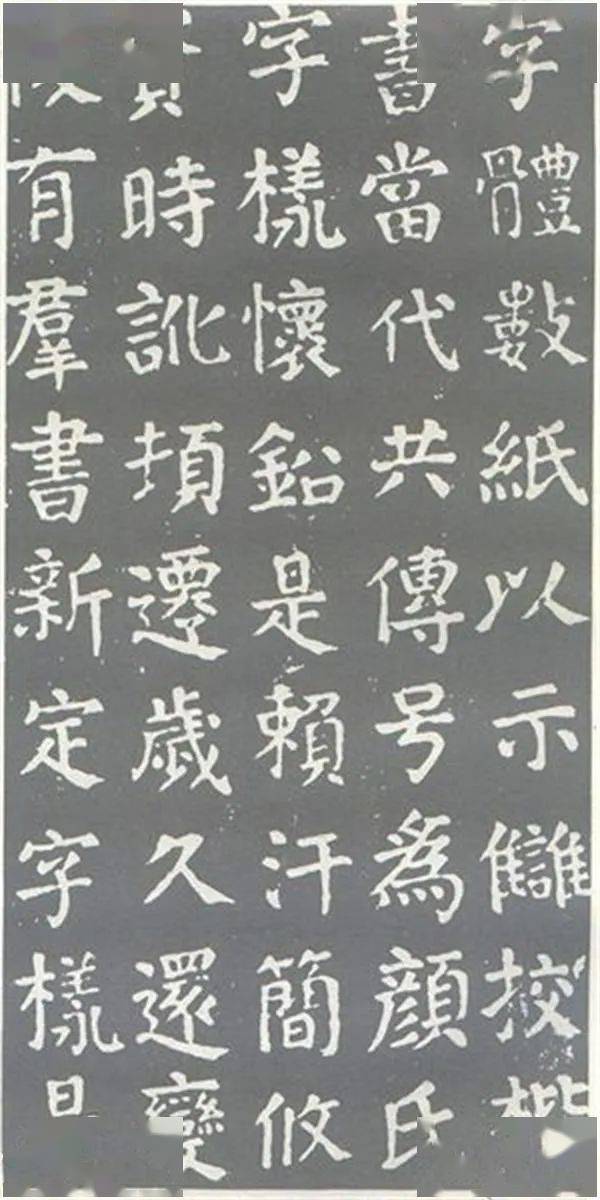 字體數紙以示讎挍
書當代共傳号為顏氏
字樣懷鉛是賴汗簡攸
時訛頓遷歲久還變
有羣書新定字樣